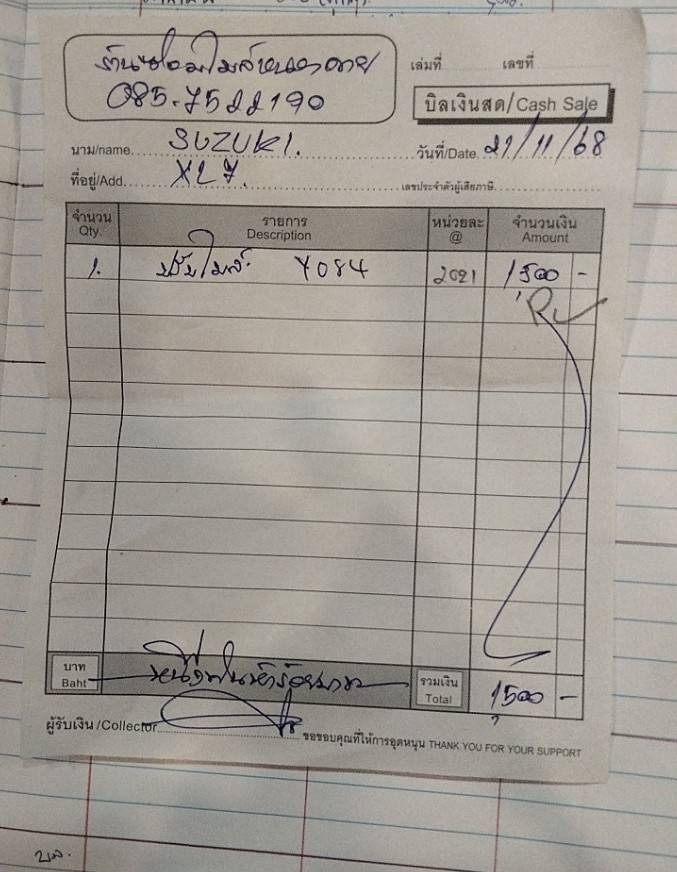 085-7522190
เล่มที่ เลขที่
บิลเงินสด/Cash Sale
นาม/name SUZUKI.
วันที่/Date 21/11/68
ที่อยู่/Add. XL7.
เลขประจำตัวผู้เสียภาษี
จำนวน รายการ หน่วยละ จำนวนเงิน
Qty. Description @ Amount
1. ปรับไมล์ Y084 2021 1500 -
บาท หนึ่งพันห้าร้อยบาท รวมเงิน 1500 -
Baht Total
ผู้รับเงิน/Collector
ขอขอบคุณที่ให้การอุดหนุน THANK YOU FOR YOUR SUPPORT